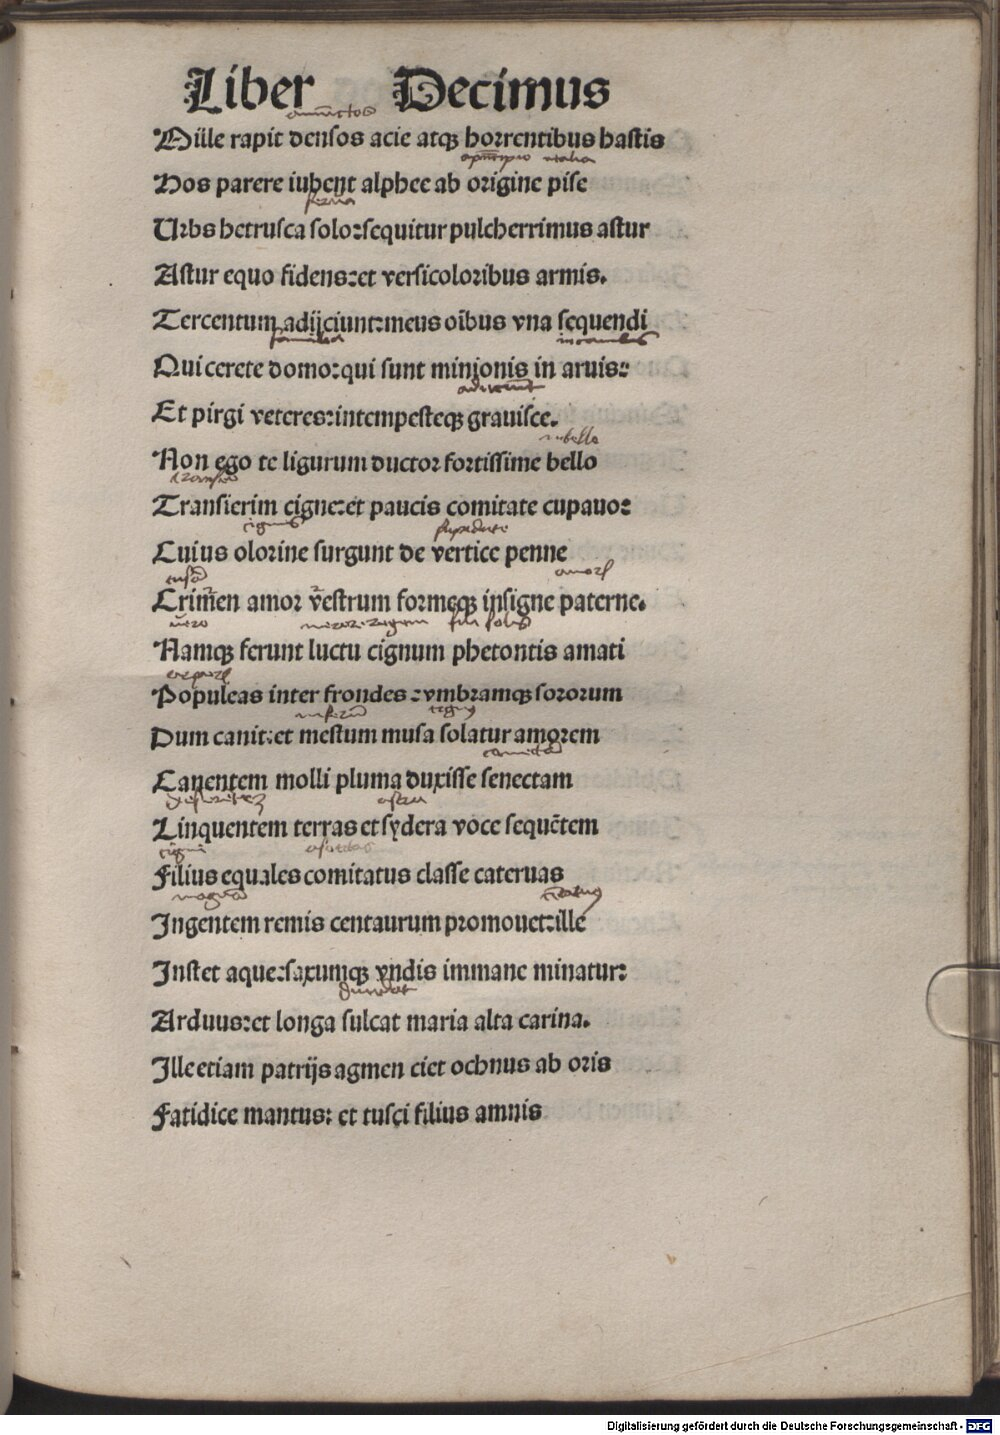 Liber Decimus
Mille rapit densos acie atqꝫ horrentibus hastis
Hos parere iubent alphee ab origine pise
Urbs hetrusca solo:sequitur pulcherrimus astur
Astur equo fidens:et versicoloribus armis.
Tercentum adijciunt:meus oībus vna sequendi
Qui cerete domo:qui sunt minionis in aruis:
Et pirgi veteres:intempesteqꝫ grauisce.
Non ego te ligurum ductor fortissime bello
Transierim cigne:et paucis comitate cupauo:
Cuius olorine surgunt de vertice penne
Crimen amor vestrum formeqꝫ insigne paterne.
Namqꝫ ferunt luctu cignum phetontis amati
Populeas inter frondes:vmbramqꝫ sororum
Dum canit:et mestum musa solatur amorem
Canentem molli pluma duxisse senectam
Linquentem terras et sydera voce sequētem
Filius equales comitatus classe cateruas
Ingentem remis centaurum promouet:ille
Instet aque:saxumqꝫ vndis immane minatur:
Arduus:et longa sulcat maria alta carina.
Ille etiam patrijs agmen ciet ochnus ab oris
Fatidice mantus: et tusci filius amnis
Digitalisierung gefördert durch die Deutsche Forschungsgemeinschaft - DFG